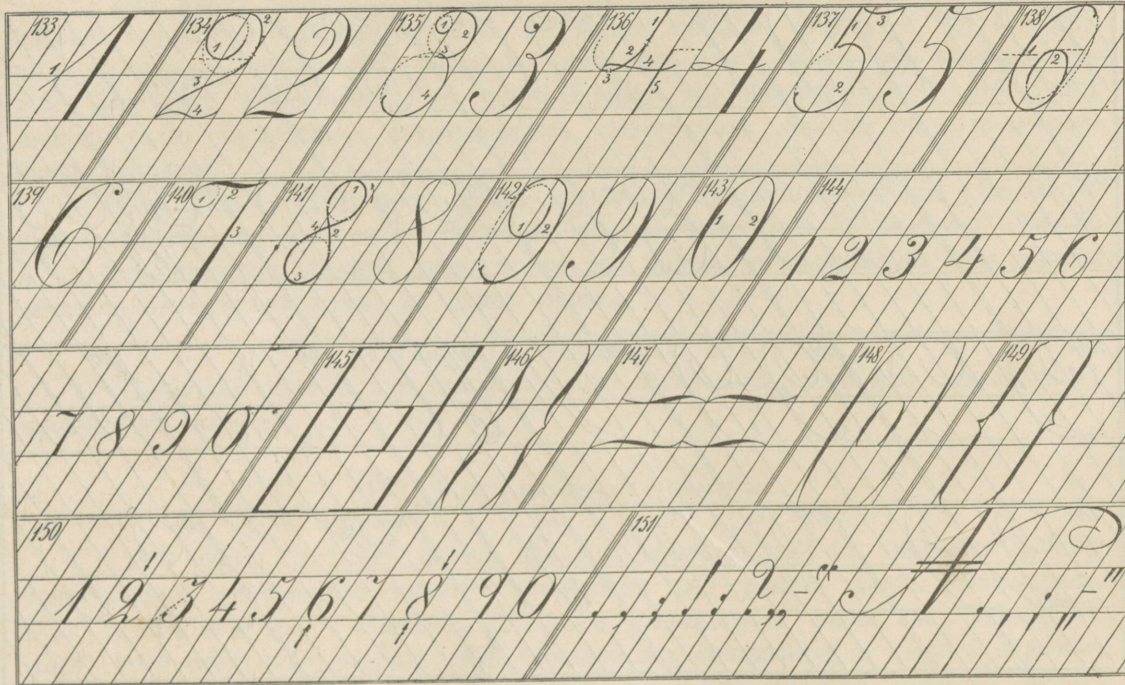 133 1 1 134 1 2 3 4 2 2 135 1 2 3 4 3 3 136 1 2 3 4 5 4 4 137 1 2 3 5 5 138 1 2 6
139 6 140 1 2 3 7 141 1 2 3 4 8 8 142 1 2 9 9 143 1 2 0 144 1 2 3 4 5 6
7 8 9 0 145 [ [ ] ] 146 } { 147 148 ( ( ) ) 149 { }
150 1 2 3 4 5 6 7 8 9 0 151 . , ; : ! ?